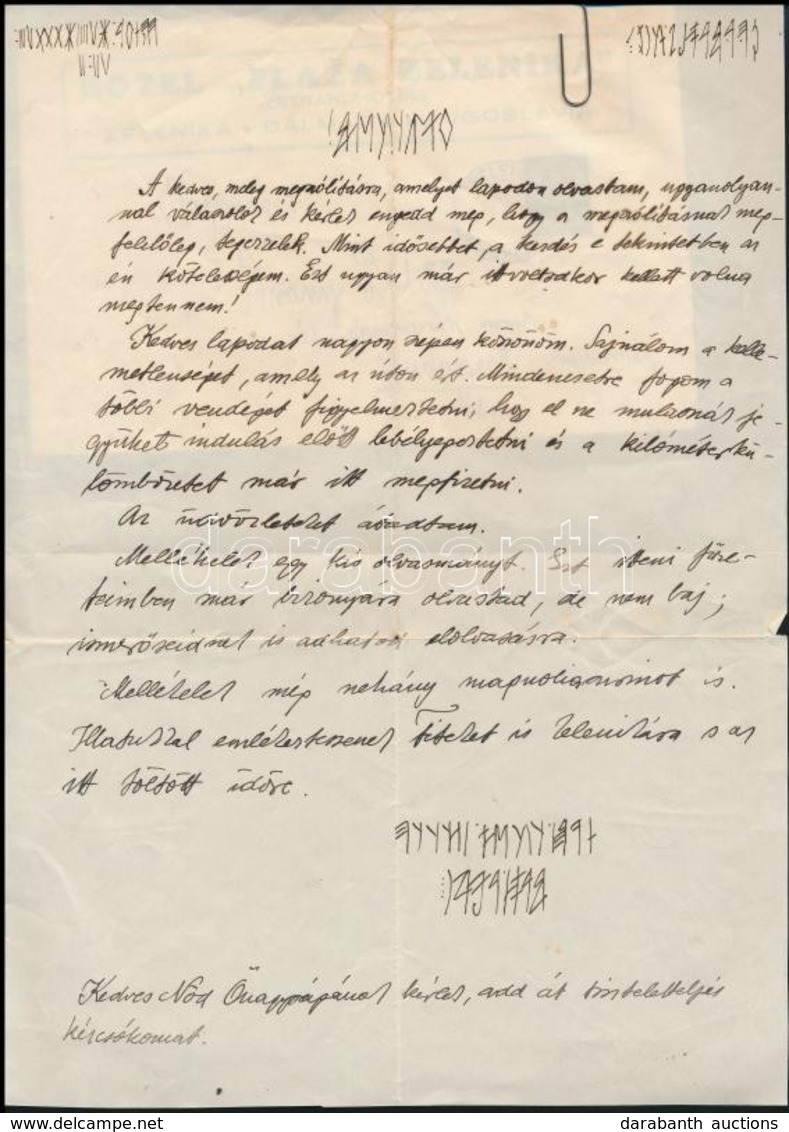 A kedves, meleg megszólításra, amelyet lapodon olvastam, ugyanolyan-
nal válaszolok és kérlek engedd meg, hogy a megszólításnak meg-
felelőleg, tegezzelek. Mint idősebbet, a kezdés e tekintetben az
én kötelességem. Ezt ugyan már ittvoltodkor kellett volna
megtennem!
Kedves lapodat nagyon szépen köszönöm. Sajnálom a kelle-
metlenséget, amely az úton ért. Mindenesetre fogom a
többi vendéget figyelmeztetni, hogy el ne mulasszák je-
gyüket indulás előtt lebélyegeztetni és a kilométerkü-
lömbözetet már itt megfizetni.
Az üdvözleteket átadtam.
Mellékelek egy kis olvasmányt. Ezt itteni füze-
teimben már bizonyára olvastad, de nem baj;
ismerőseidnek is adhatod elolvasásra.
Mellékelek még néhány magnoliaszirmot is.
Illatukkal emlékeztessenek Titeket is Zelenikára s az
itt töltött időre.
Kedves Nőd Őnagyságának kérlek, add át tiszteletteljes
kézcsókomat.
darabanth
darabanth auctions